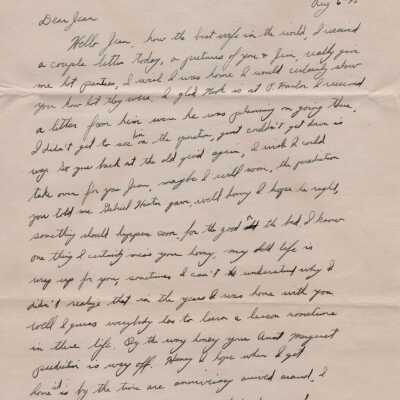 Aug 6
Dear Jean
Hello Jean, how the best wife in the world, I received
a couple letters today, a pictures of you & Jim, really gave
me hot panties, I wish I was home I would certainly show
you how hot they were. I glad Hank is at P. Harbor I received
a letter from him were he was planning on going there,
I didn't get to see him on the question, guest couldn't get down is
way. So your back at the old grind again, I wish I could
take over for you Jean, maybe I will soon, the prediction
you told me Gabriel Heater gave, well honey I hope he right,
something should happen soon, for the good or the bad, I know
one thing I certainly miss you honey, my whole life is
wrap up for you, sometimes I can't understand why I
didn't realize that in the years I was home with you
well I guess everybody has to learn a lesson sometime
in there life. By the way honey your Aunt Margaret
prediction is way off. Honey I hope when I get
home it is by the time are anniversary around, I